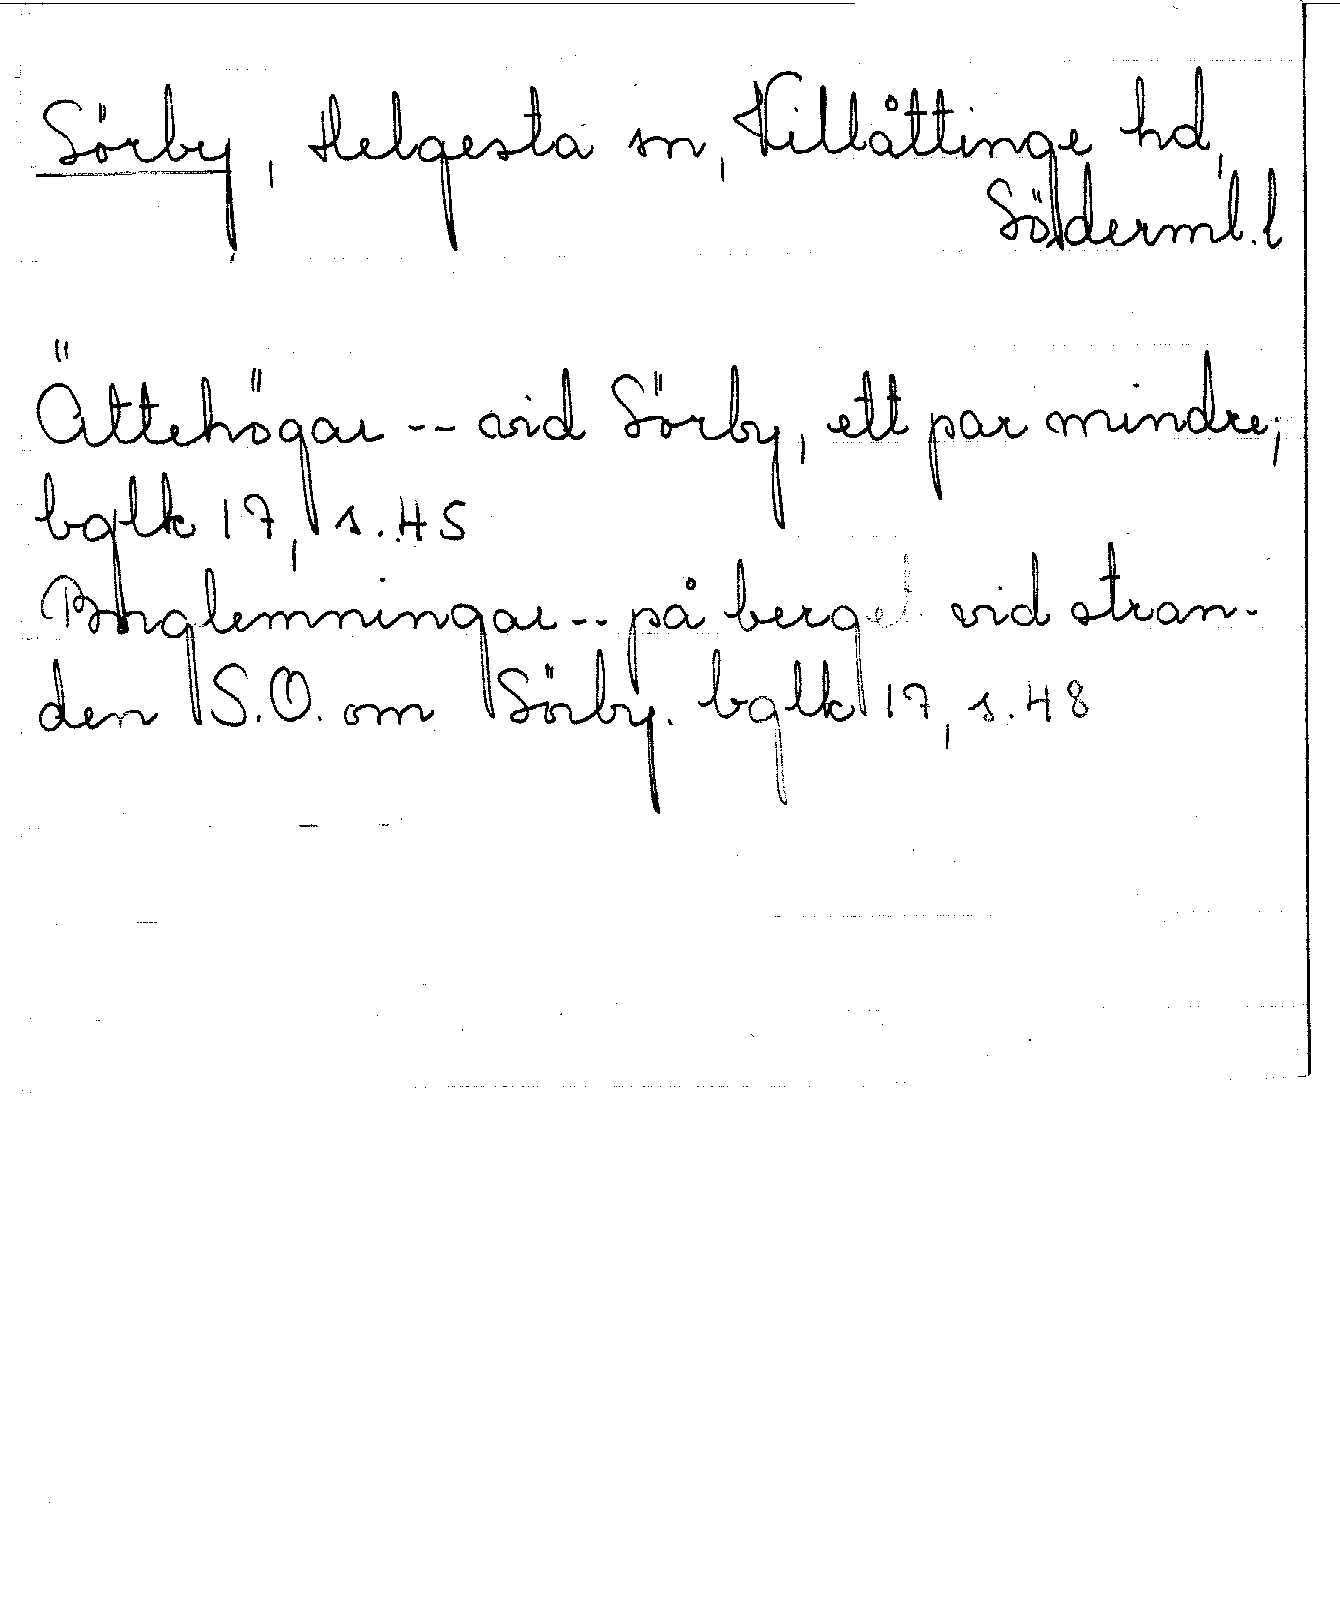 Sörby, Helgesta sn, Villåttinge hd,
Söderml. l
Ättehögar -- vid Sörby, ett par mindre;
bglk 17, s. 45
Borglemningar -- på berget vid stran-
den S.O. om Sörby. bglk 17, s. 48